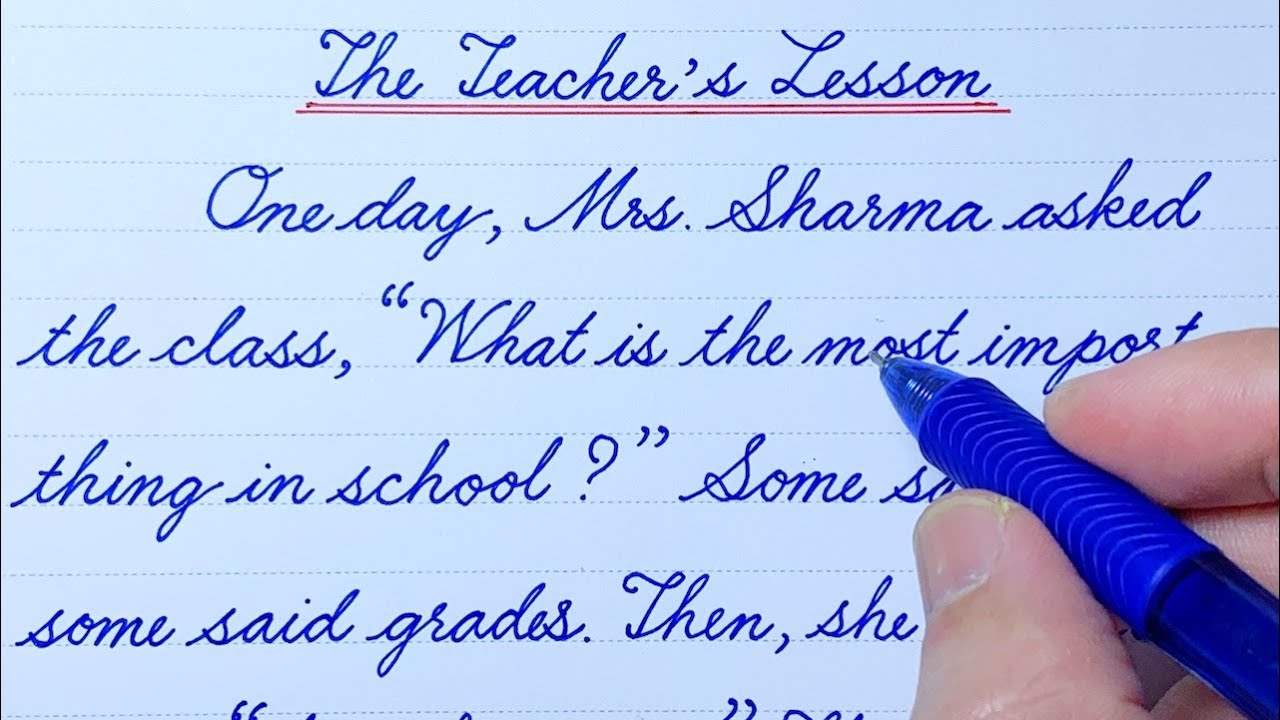 The Teacher's Lesson
One day, Mrs. Sharma asked
the class, “What is the most import
thing in school?” Some
some said grades. Then, she